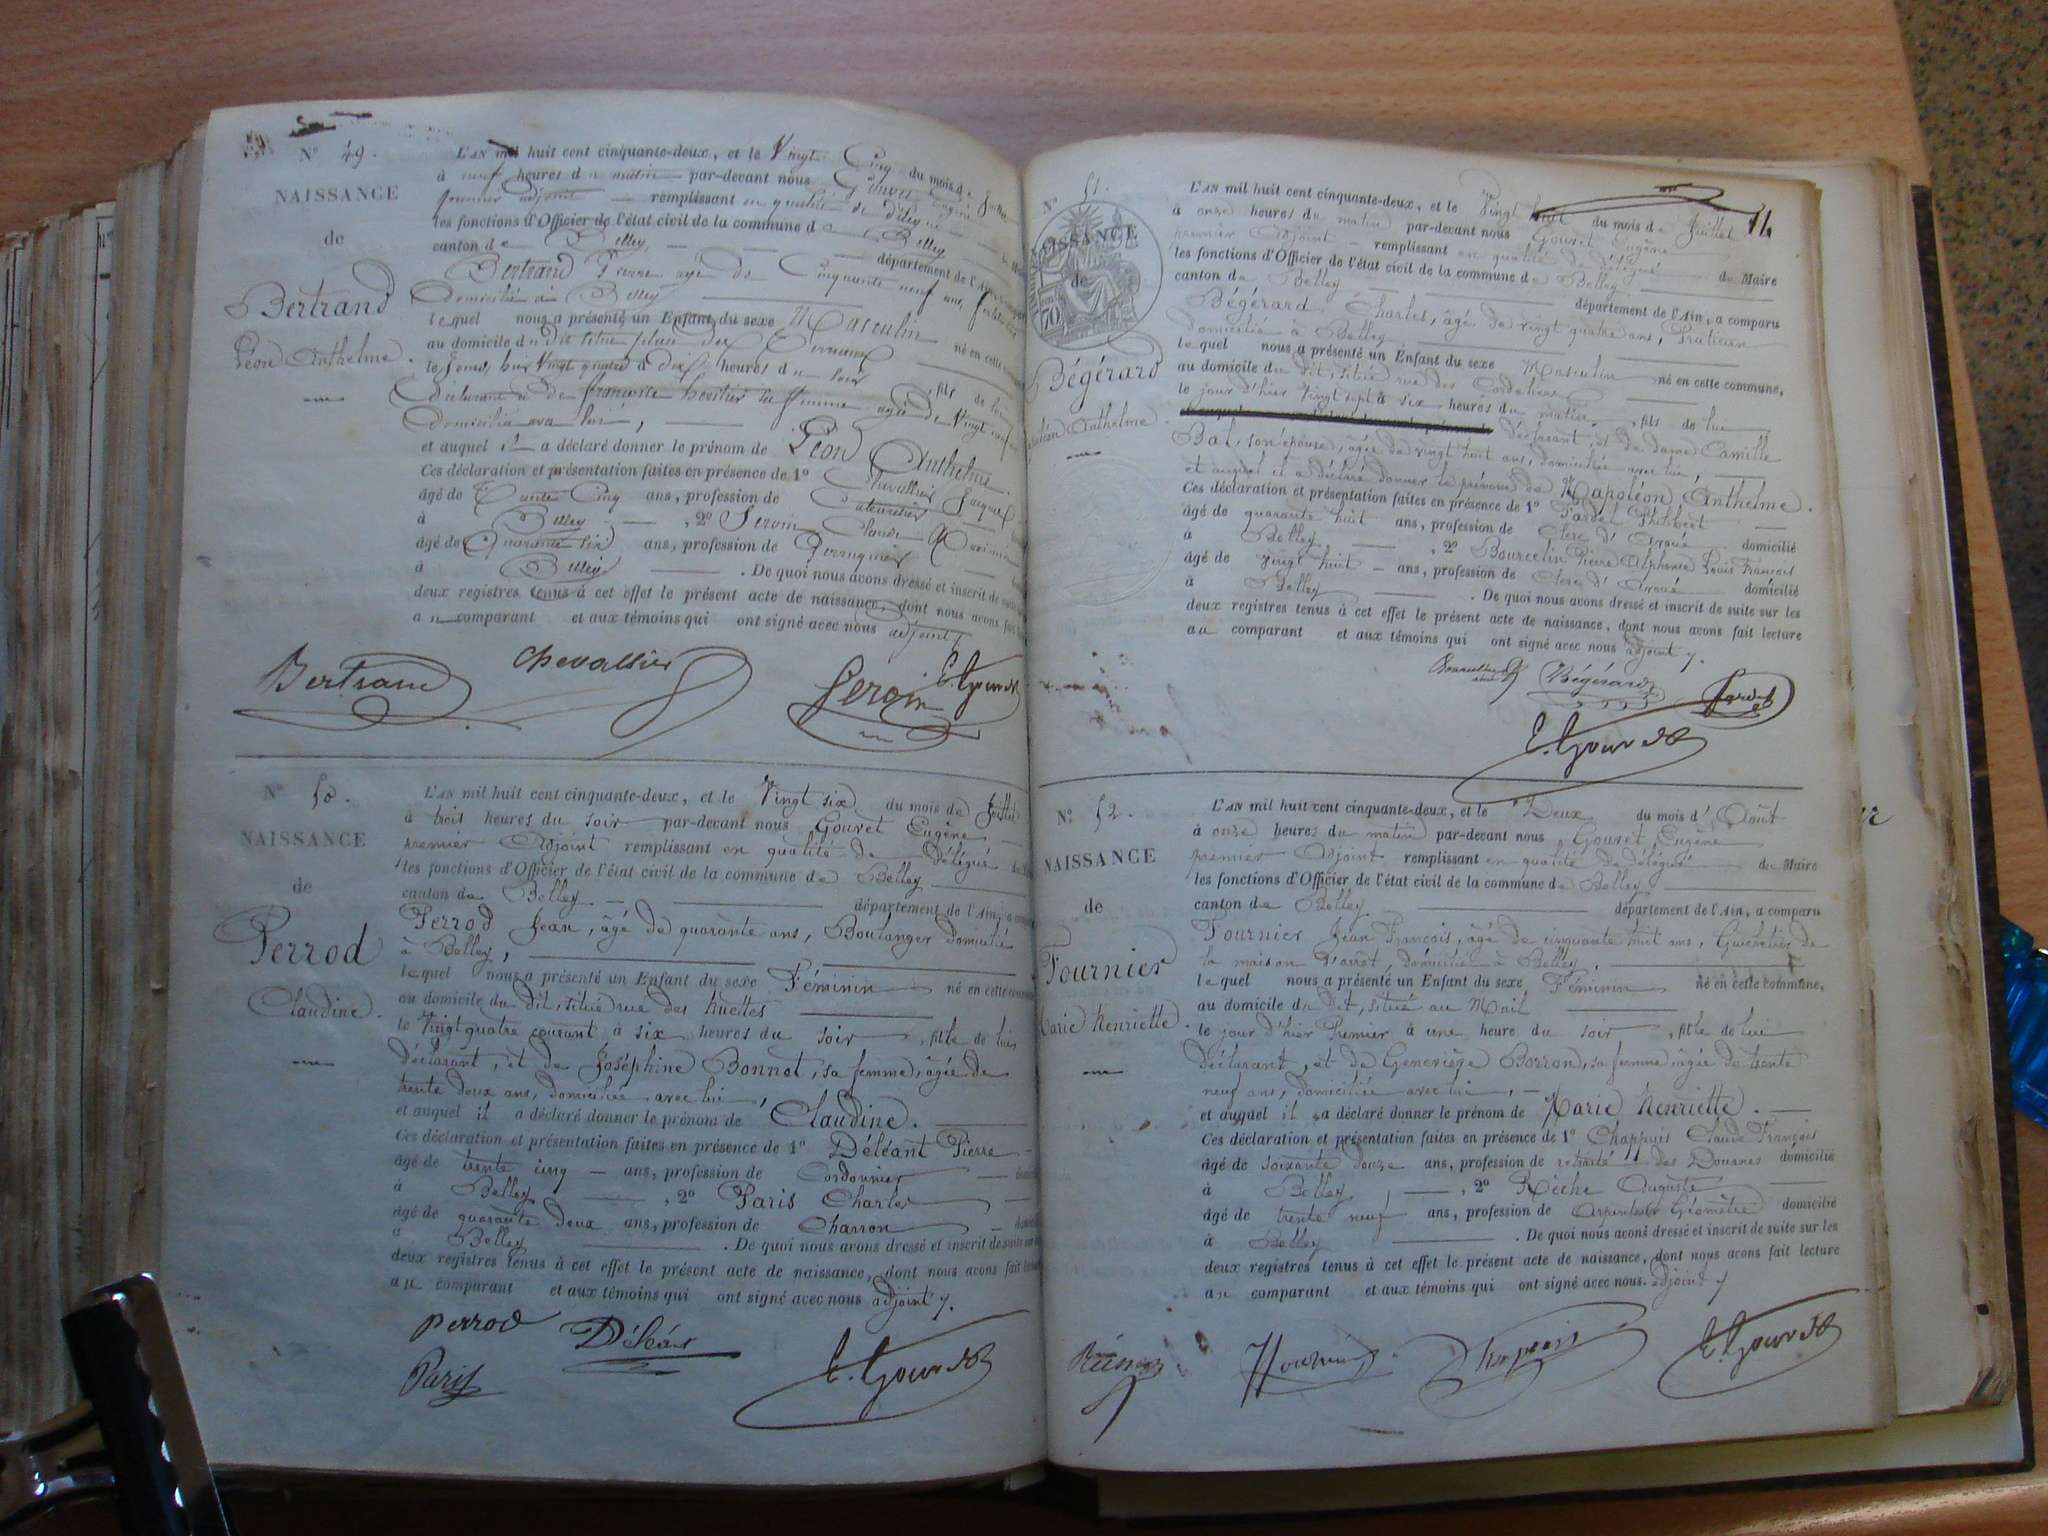 N° 49.
NAISSANCE
de
Bertrand
Léon Anthelme.
L'AN mil huit cent cinquante-deux, et le Vingt Cinq du mois de
à neuf heures du matin par-devant nous Gouvet Eugène
premier adjoint remplissant en qualité de délégué
les fonctions d'Officier de l'état civil de la commune de Belley
canton de Belley département de l'Ain
Bertrand Pierre âgé de Cinquante neuf ans,
domicilié à Belley
lequel nous a présenté un Enfant du sexe Masculin né en cette
au domicile du dit situé place des Terreaux
le jour d'hier Vingt quatre à dix heures du soir, fils de lui
déclarant et de françoise sa femme âgée de Vingt
Domiciliée avec lui,
et auquel il a déclaré donner le prénom de Léon Anthelme.
Ces déclaration et présentation faites en présence de 1° Chevallier Jacques
âgé de Trente Cinq ans, profession de
à Belley, 2° Seroin Claude
âgé de Quarante six ans, profession de Perruquier
à Belley. De quoi nous avons dressé et inscrit de suite
deux registres tenus à cet effet le présent acte de naissance, dont nous avons fait
au comparant et aux témoins qui ont signé avec nous adjoint.
Bertrand Chevallier Seroin E. Gouvet
N° 50.
NAISSANCE
de
Perrod
Claudine.
L'AN mil huit cent cinquante-deux, et le Vingt six du mois de Juillet
à trois heures du soir par-devant nous Gouvet Eugène
premier Adjoint remplissant en qualité de Délégué
les fonctions d'Officier de l'état civil de la commune de Belley
canton de Belley département de l'Ain, a
Perrod Jean, âgé de quarante ans, Boulanger domicilié
à Belley,
lequel nous a présenté un Enfant du sexe Féminin né en cette
au domicile du dit, situé rue des huttes
le Vingt quatre courant à six heures du soir, fille de lui
déclarant, et de Joséphine Bonnot, sa femme, âgée de
trente deux ans, domiciliée avec lui,
et auquel il a déclaré donner le prénom de Claudine.
Ces déclaration et présentation faites en présence de 1° Déléant Pierre
âgé de trente cinq ans, profession de Cordonnier
à Belley, 2° Paris Charles
âgé de quarante deux ans, profession de Charron
à Belley. De quoi nous avons dressé et inscrit de suite
deux registres tenus à cet effet le présent acte de naissance, dont nous avons fait
au comparant et aux témoins qui ont signé avec nous adjoint.
Perrod Déléant
Paris E. Gouvet
N° 51.
NAISSANCE
de
Bégérard
Anthelme.
L'AN mil huit cent cinquante-deux, et le Vingt huit du mois de Juillet
à onze heures du matin par-devant nous Gouvet Eugène
premier Adjoint remplissant en qualité de délégué du Maire
les fonctions d'Officier de l'état civil de la commune de Belley
canton de Belley département de l'Ain, a comparu
Bégérard Charles, âgé de vingt quatre ans, Praticien
domicilié à Belley
lequel nous a présenté un Enfant du sexe Masculin né en cette commune,
au domicile du dit, situé rue des Cordeliers
le jour d'hier Vingt sept à six heures du matin, fils de lui
déclarant, et de dame Camille
Bal, son épouse, âgée de vingt huit ans, domiciliée avec lui
et auquel il a déclaré donner le prénom de Napoléon Anthelme.
Ces déclaration et présentation faites en présence de 1° Tardel Philibert
âgé de quarante huit ans, profession de Clerc d'Avoué domicilié
à Belley, 2° Bourcelin Pierre Alphonse Louis François
âgé de vingt huit ans, profession de Clerc d'Avoué domicilié
à Belley. De quoi nous avons dressé et inscrit de suite sur les
deux registres tenus à cet effet le présent acte de naissance, dont nous avons fait lecture
au comparant et aux témoins qui ont signé avec nous adjoint.
Bégérard
E. Gouvet
N° 52.
NAISSANCE
de
Fournier
Marie henriette.
L'AN mil huit cent cinquante-deux, et le Deux du mois d'Août
à onze heures du matin par-devant nous Gouvet Eugène
premier Adjoint remplissant en qualité de délégué du Maire
les fonctions d'Officier de l'état civil de la commune de Belley
canton de Belley département de l'Ain, a comparu
Fournier Jean François, âgé de cinquante huit ans, Guichetier de
la maison d'arrêt, domicilié à Belley
lequel nous a présenté un Enfant du sexe Féminin né en cette commune,
au domicile du dit, situé au Mail
le jour d'hier Premier à une heure du soir, fille de lui
déclarant, et de Geneviève Borron, sa femme, âgée de trente
neuf ans, domiciliée avec lui,
et auquel il a déclaré donner le prénom de Marie henriette.
Ces déclaration et présentation faites en présence de 1° Chappuis Claude François
âgé de soixante douze ans, profession de retraité des Douanes domicilié
à Belley, 2° Réche Auguste
âgé de trente neuf ans, profession de Arpenteur Géomètre domicilié
à Belley. De quoi nous avons dressé et inscrit de suite sur les
deux registres tenus à cet effet le présent acte de naissance, dont nous avons fait lecture
au comparant et aux témoins qui ont signé avec nous. adjoint
Fournier Chappuis E. Gouvet